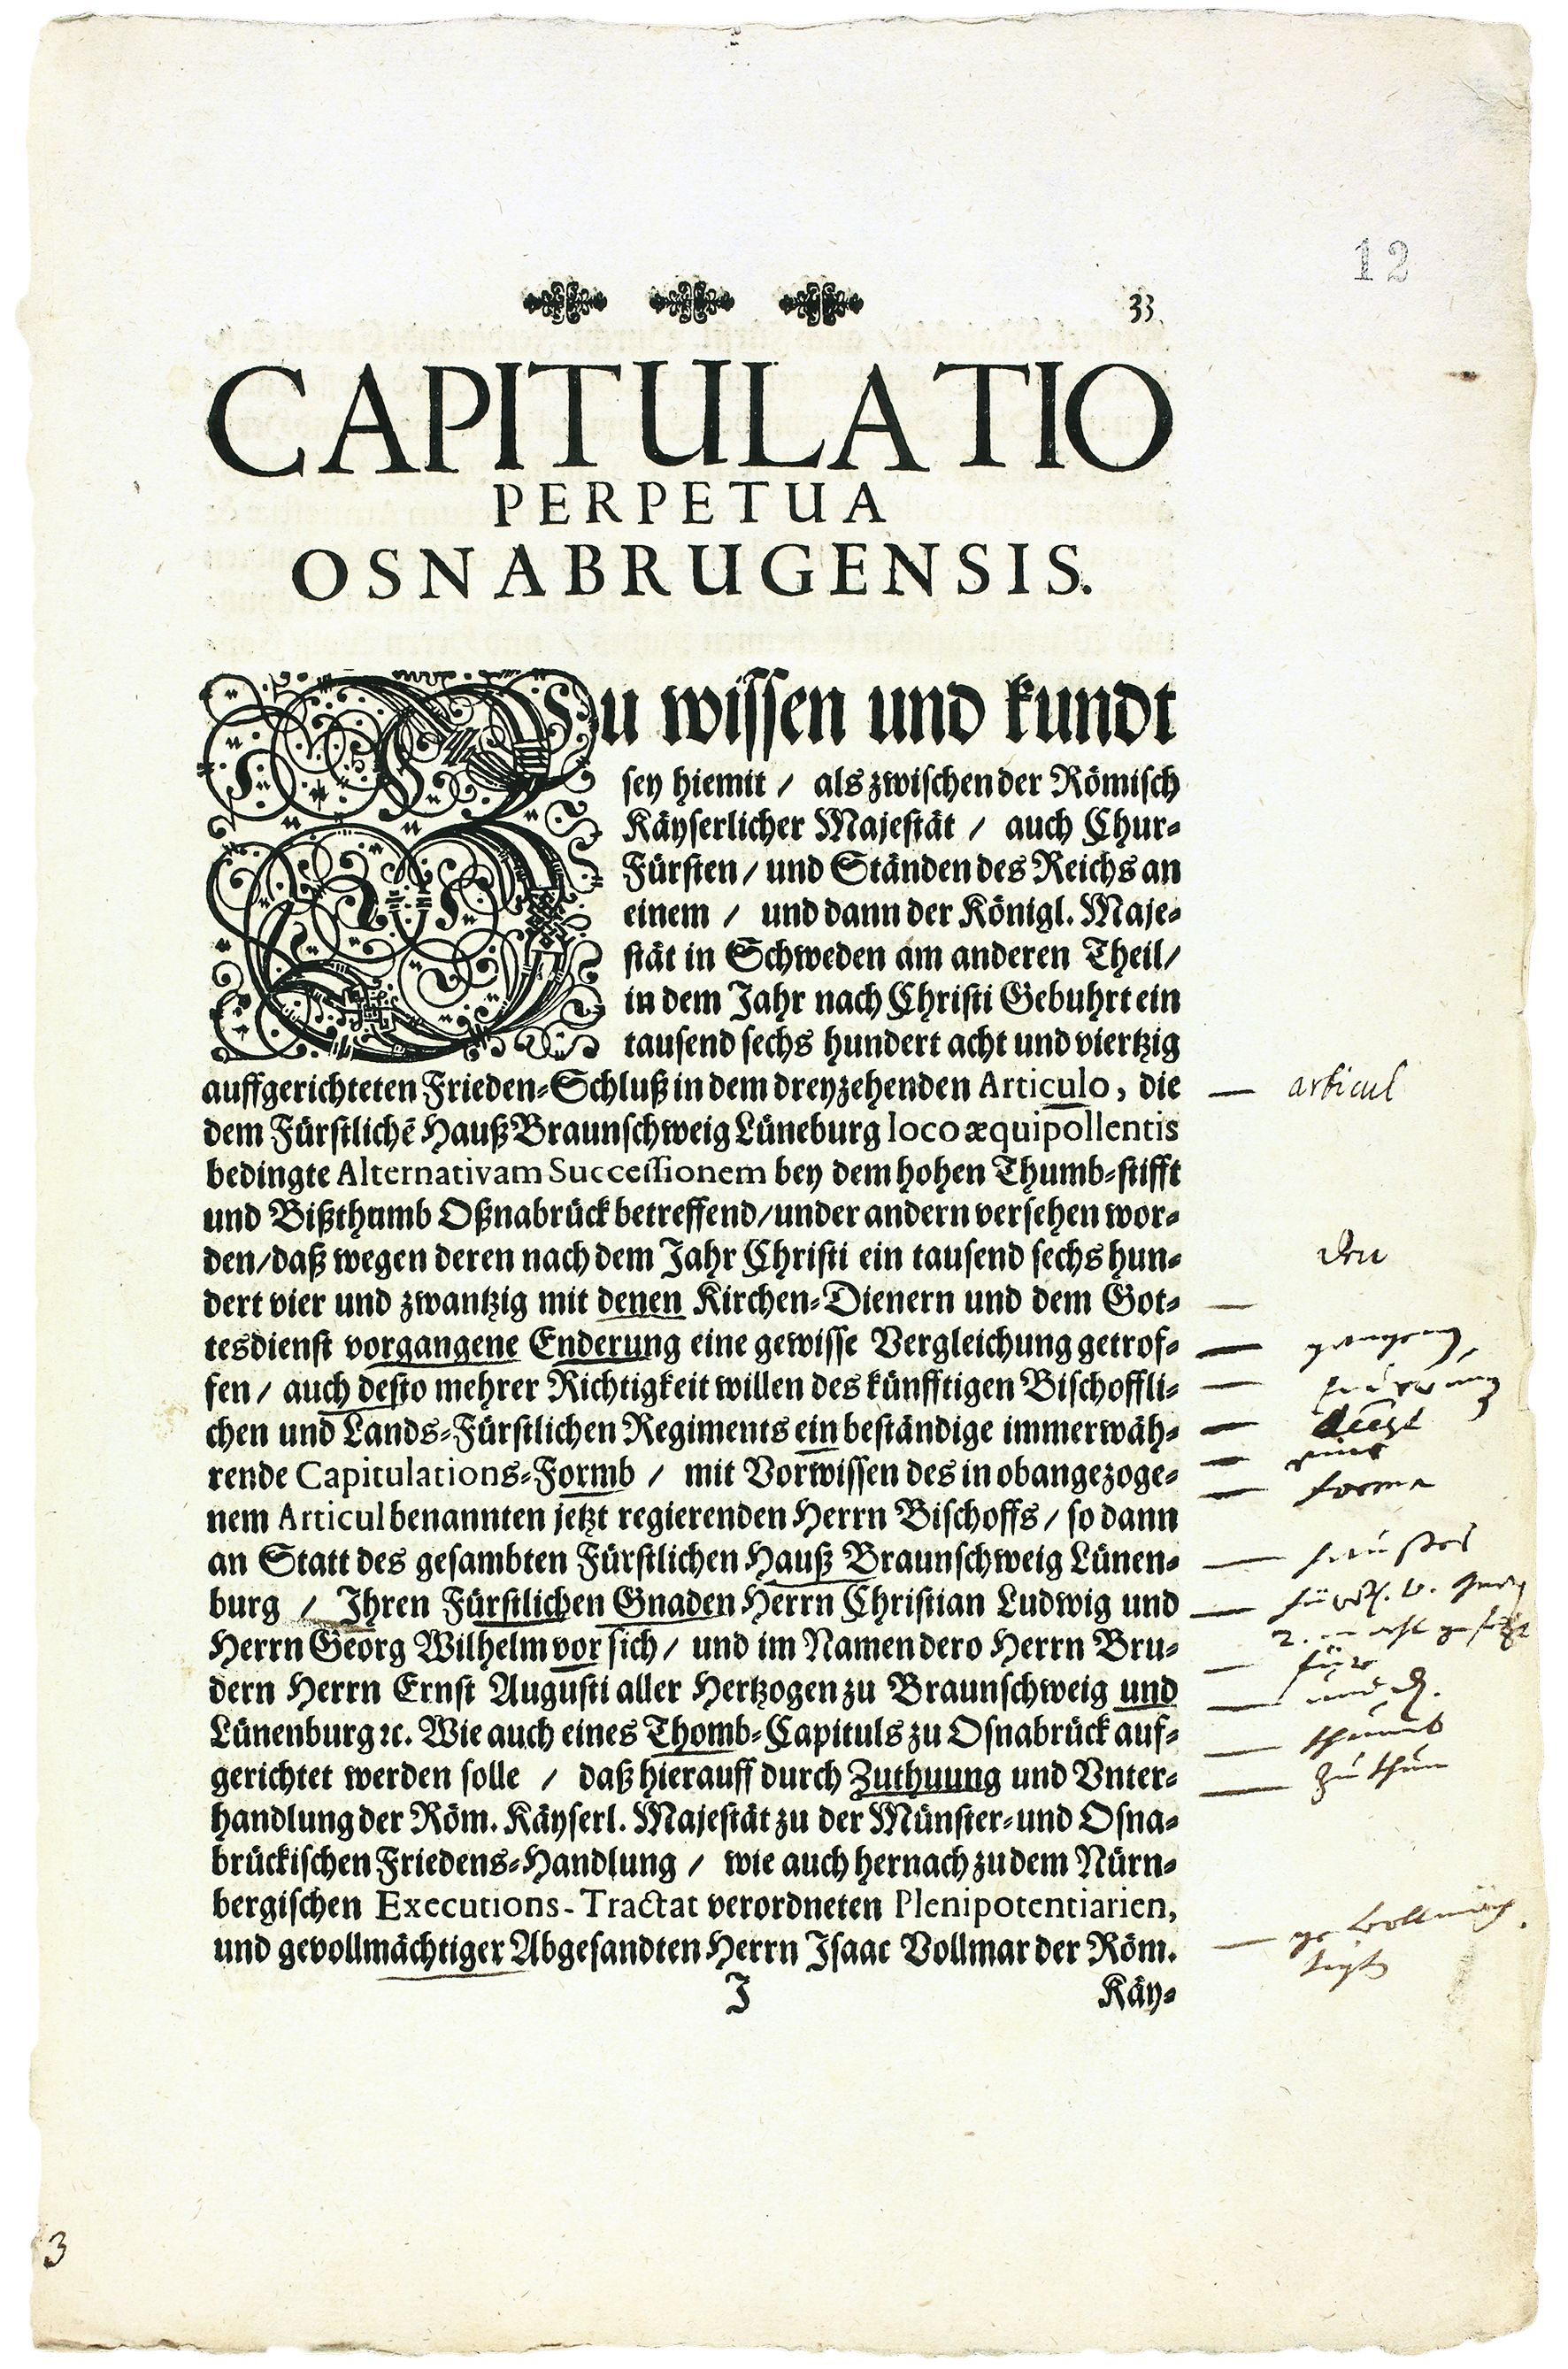 12
33
CAPITULATIO
PERPETUA
OSNABRUGENSIS.
Zu wissen und kundt
sey hiemit / als zwischen der Römisch
Käyserlicher Majestät / auch Chur-
Fürsten / und Ständen des Reichs an
einem / und dann der Königl. Maje-
stät in Schweden am anderen Theil /
in dem Jahr nach Christi Gebuhrt ein
tausend sechs hundert acht und viertzig
auffgerichteten Frieden-Schluß in dem dreyzehenden Articulo, die — articul
dem Fürstlichẽ Hauß Braunschweig Lüneburg loco æquipollentis
bedingte Alternativam Successionem bey dem hohen Thumb-stifft
und Bißthumb Oßnabrück betreffend / under andern versehen wor-
den / daß wegen deren nach dem Jahr Christi ein tausend sechs hun- den
dert vier und zwantzig mit denen Kirchen-Dienern und dem Got- —
tesdienst vorgangene Enderung eine gewisse Vergleichung getrof- —
fen / auch desto mehrer Richtigkeit willen des künfftigen Bischoffli- —
chen und Lands-Fürstlichen Regiments ein beständige immerwäh- —
rende Capitulations-Formb / mit Vorwissen des in obangezoge- — eine
nem Articul benannten jetzt regierenden Herrn Bischoffs / so dann — forma
an Statt des gesambten Fürstlichen Hauß Braunschweig Lünen- — haußes
burg / Ihren Fürstlichen Gnaden Herrn Christian Ludwig und —
Herrn Georg Wilhelm vor sich / und im Namen dero Herrn Bru- — für
dern Herrn Ernst Augusti aller Hertzogen zu Braunschweig und —
Lünenburg ꝛc. Wie auch eines Thomb-Capituls zu Osnabrück auf- — thumb
gerichtet werden solle / daß hierauff durch Zuthuung und Vnter- — zuthun
handlung der Röm. Käyserl. Majestät zu der Münster- und Osna-
brückischen Friedens-Handlung / wie auch hernach zu dem Nürn-
bergischen Executions-Tractat verordneten Plenipotentiarien,
und gevollmächtiger Abgesandten Herrn Isaac Vollmar der Röm. — gevollmäch-
tigte
J Käy-
3